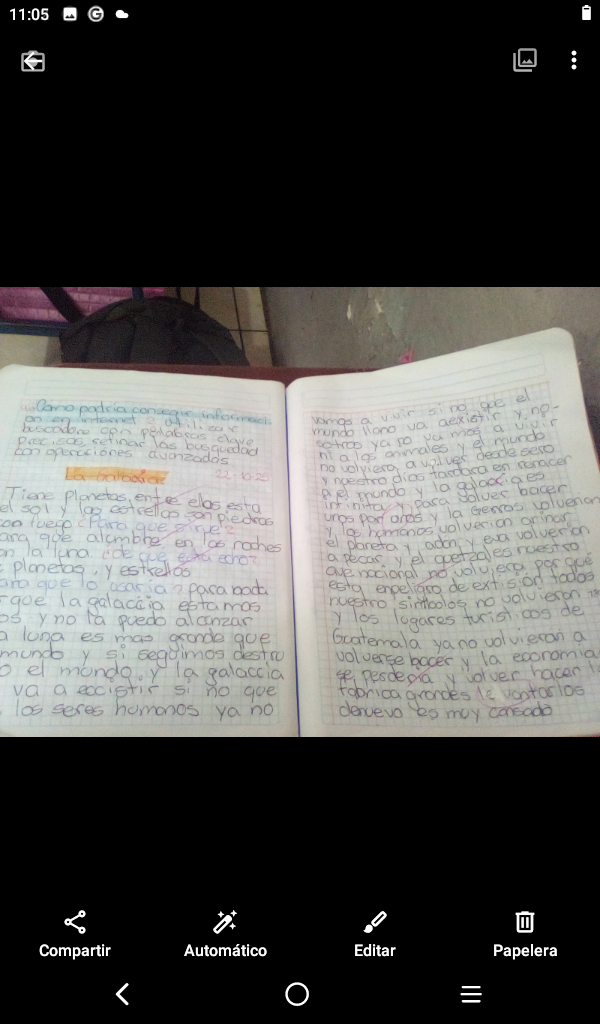 11:05
Como podria conseguir informaci
on en internet? Utilizar
buscadore con palabras clave
precisas, refinar las busquedad
con operaciones avanzados
La Galaccia 22-10-25
Tiene planetas, entre ellos esta
el sol y las estrellas son piedras
con fuego ¿Para que sirve?
ara que alumbre en las noches
on la luna ¿de que esta echo?
e planetas, y estrellos
ara que lo usaria? para nada
rque la galaccia estamos
os y no la puedo alcanzar
a luna es mas grande que
mundo y si seguimos destru
o el mundo, y la galaccia
va a eccistir si no que
los seres humanos ya no
vamos a vivir sino que el
mundo llano va aexistir y no-
sotros ya no vamos a vivir
ni a los animales y el mundo
no volviera a volver desde sero
y nuestro dios tardara en renacer
el mundo y la galaccia es
infinita, y para volver hacer
unos por años y la tierra volvieran
y los humanos volverion
el planeta y adan y eva volverion
a pecar, y el quetzal es nuestro
ave nacional no volviera por qué
esta enpeligro de extision todos
nuestro simbolos no volvieron
y los lugares turisticos de
Guatemala ya no volvieran a
volverse hacer y la economia
se perderia y volver hacer l
fabrica grandes levantarlos
denuevo es muy cansado
Compartir
Automático
Editar
Papelera